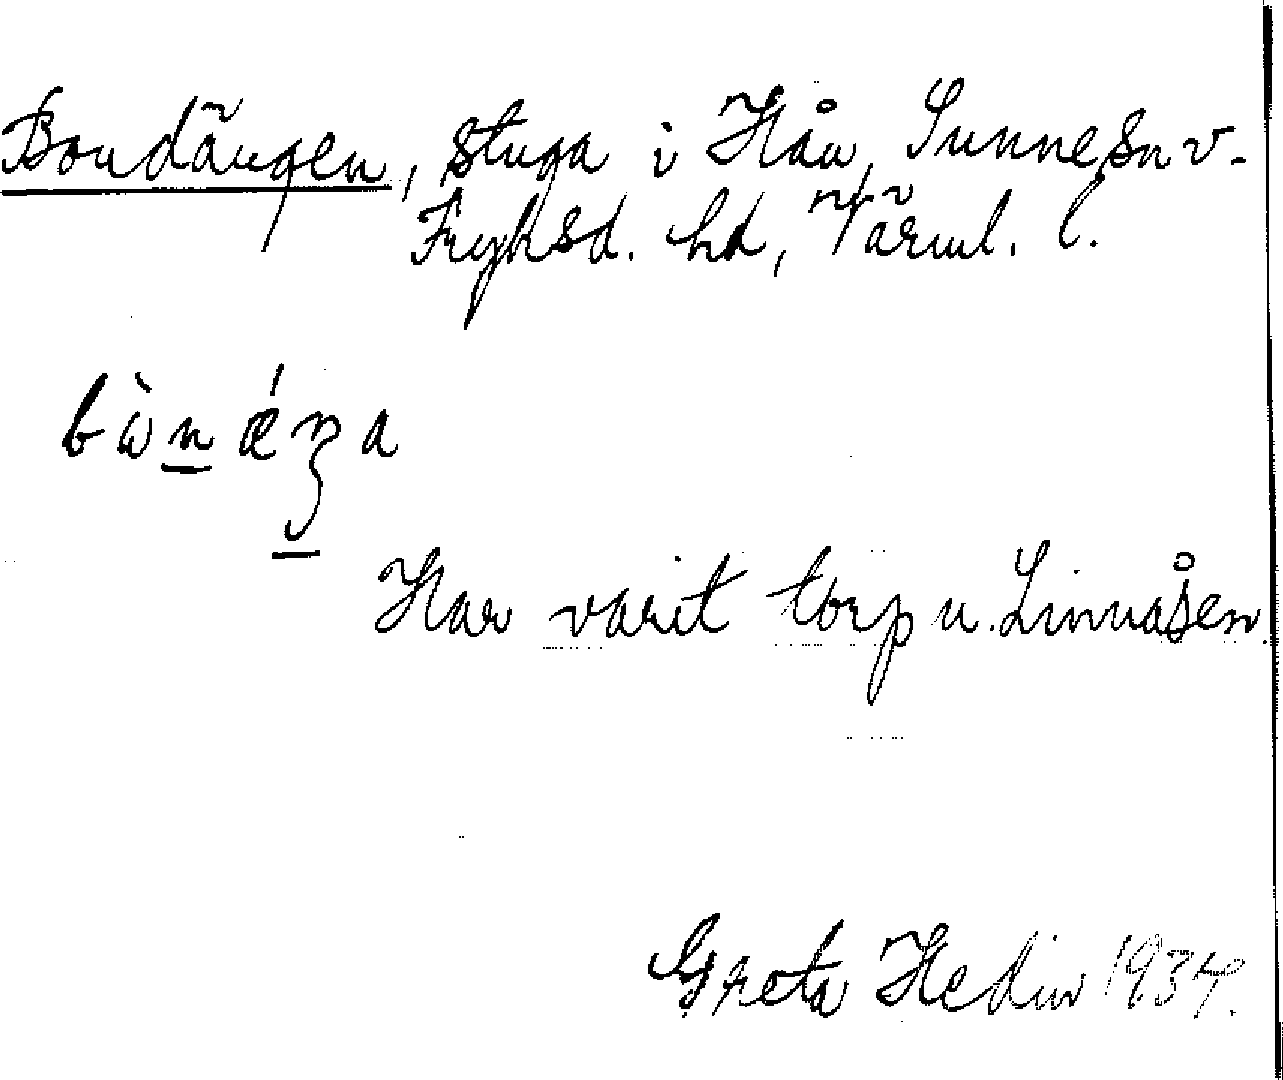 Bondängen, stuga i Hån, Sunne sn v.
Fryksd. hd, Värml. l.
bὼn ǽŋa
Har varit torp u. Linnåsen.
Greta Hedin 1934.